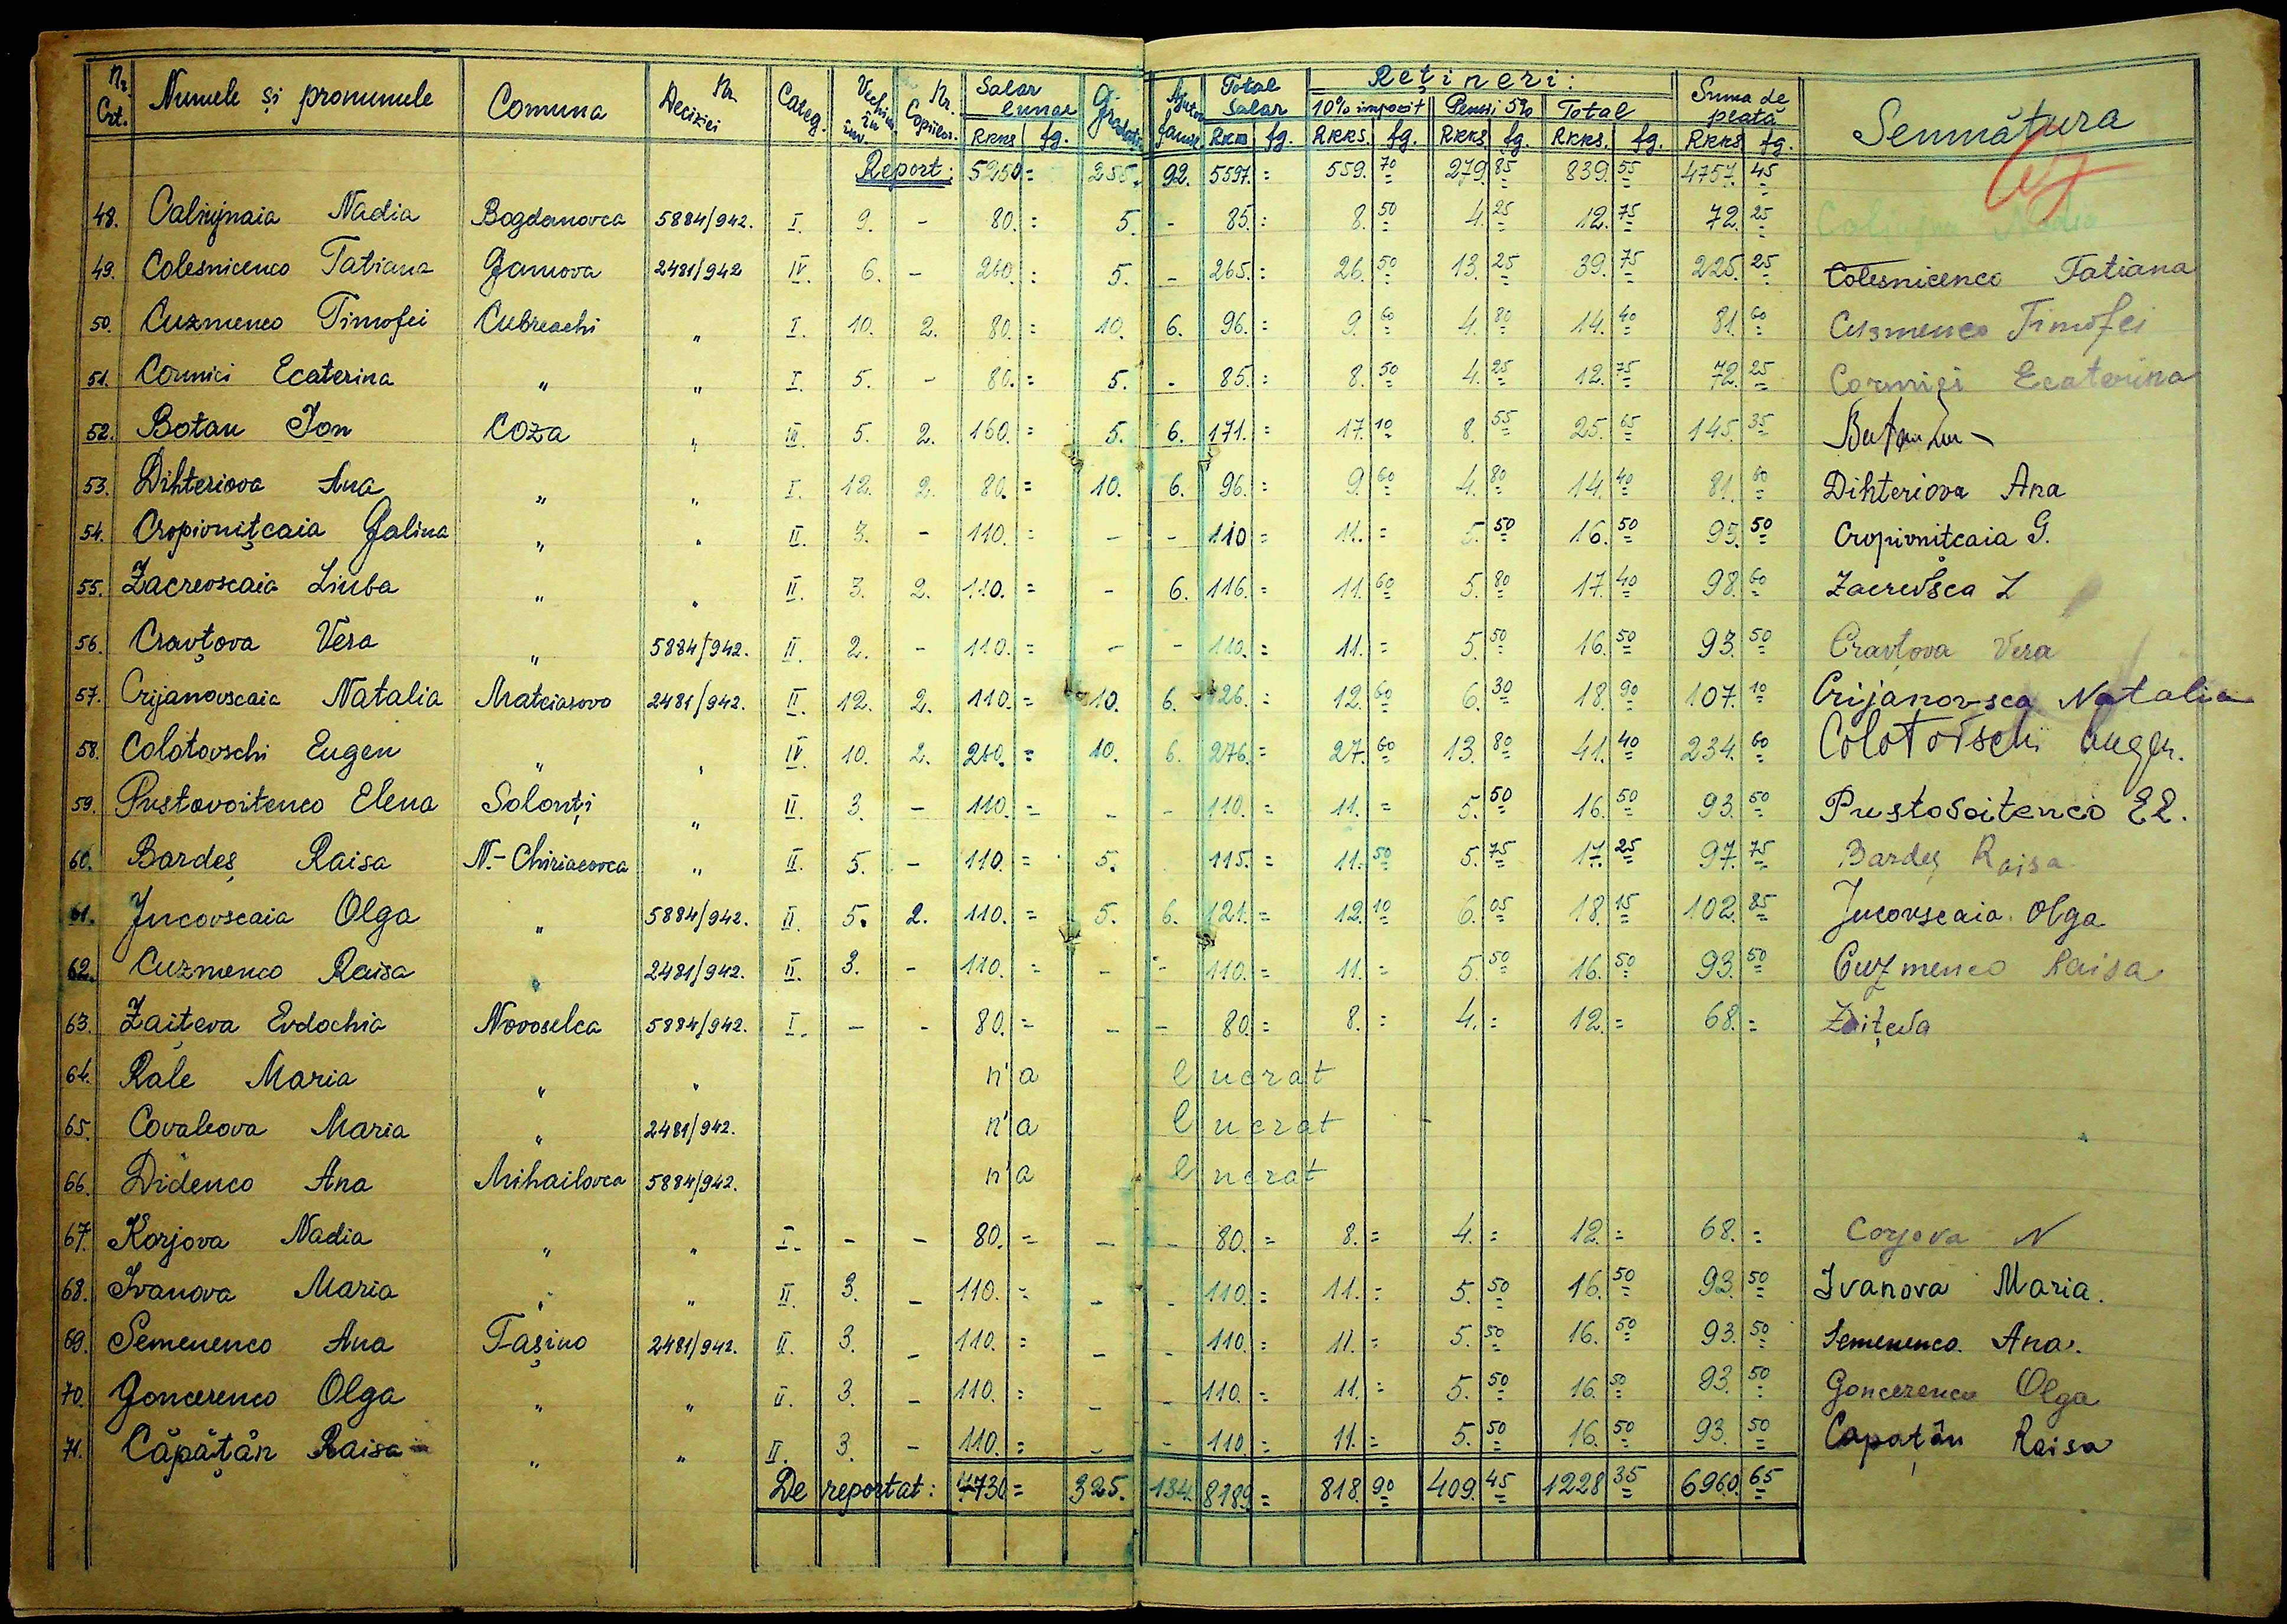 Nr. Crt. Numele și pronumele Comuna Nr. Deciziei Categ. Vechim. în înv. Nr. Copiilor. Salar lunar Gradații Ajutor famil. Total Salar Rețineri: Suma de plată Semnătura
10% impozit Pensii 5% Total
RKKS fg. RKKS fg. RKKS. fg. RKKS fg. RKKS. fg. RKKS fg.
Report: 5250 = 255. 92. 5597. = 559. 70 279. 85 839. 55 4757. 45
48. Caliujnaia Nadia Bogdanovca 5884/942. I. 9. - 80. = 5. - 85. = 8. 50 4. 25 12. 75 72. 25 Nadia
49. Colesnicenco Tatiana Ganuova 2481/942 IV. 6. - 260. = 5. - 265. = 26. 50 13. 25 39. 75 225. 25 Colesnicenco Tatiana
50. Cuzmenco Timofei Cubreachi " I. 10. 2. 80. = 10. 6. 96. = 9. 60 4. 80 14. 40 81. 60 Cusmenco Timofei
51. Cormici Ecaterina " " I. 5. - 80. = 5. - 85. = 8. 50 4. 25 12. 75 72. 25 Cormiçi Ecaterina
52. Botan Ion Coza " III. 5. 2. 160. = 5. 6. 171. = 17. 10 8. 55 25. 65 145. 35
53. Dihteriova Ana " " I. 12. 2. 80. = 10. 6. 96. = 9. 60 4. 80 14. 40 81. 60 Dihteriova Ana
54. Cropivnițcaia Galina " " II. 3. - 110. = - - 110 = 11. = 5. 50 16. 50 93. 50 Cropivnițcaia G.
55. Zacrevscaia Liuba " " II. 3. 2. 110. = - 6. 116. = 11. 60 5. 80 17. 40 98. 60 Zacrevsca L
56. Cravțova Vera " 5884/942. II. 2. - 110. = - - 110. = 11. = 5. 50 16. 50 93. 50 Cravțova Vera
57. Crijanovscaia Natalia Mateiasovo 2481/942. II. 12. 2. 110. = 10. 6. 126. = 12. 60 6. 30 18. 90 107. 10 Crijanovsca Natalia
58. Colotovschi Eugen " " IV. 10. 2. 260. = 10. 6. 276. = 27. 60 13. 80 41. 40 234. 60 Colotovschi Eugen.
59. Pustovoitenco Elena Solonți " II. 3. - 110. = - - 110. = 11. = 5. 50 16. 50 93. 50 Pustovoitenco El.
60. Bardeș Raisa N.-Chiriaeovca " II. 5. - 110. = 5. 115. = 11. 50 5. 75 17. 25 97. 75 Bardeș Raisa
61. Jucovscaia Olga " 5884/942. II. 5. 2. 110. = 5. 6. 121. = 12. 10 6. 05 18. 15 102. 85 Jucovscaia Olga
62. Cuzmenco Raisa " 2481/942. II. 3. - 110. = - - 110. = 11. = 5. 50 16. 50 93. 50 Cuzmenco Raisa
63. Zaițeva Evdochia Novoselca 5884/942. I. - - 80. = - - 80. = 8. = 4. = 12. = 68. = Zaițeva
64. Rale Maria " " n'a lucrat
65. Covaleova Maria " 2481/942. n'a lucrat
66. Didenco Ana Mihailovca 5884/942. n'a lucrat
67. Korjova Nadia " " I. - - 80. = - - 80. = 8. = 4. = 12. = 68. = Corjova N
68. Ivanova Maria " " II. 3. - 110. = - - 110. = 11. = 5. 50 16. 50 93. 50 Ivanova Maria.
69. Semenenco Ana Tașino 2481/942. II. 3. - 110. = - - 110. = 11. = 5. 50 16. 50 93. 50 Semenenco Ana.
70. Goncerenco Olga " " II. 3. - 110. = - - 110. = 11. = 5. 50 16. 50 93. 50 Goncerenco Olga
71. Căpățân Raisa " " II. 3. - 110. = - - 110 = 11. = 5. 50 16. 50 93. 50 Capațân Raisa
De reportat: 7730 = 325. 134. 8189 = 818. 90 409. 45 1228 35 6960. 65